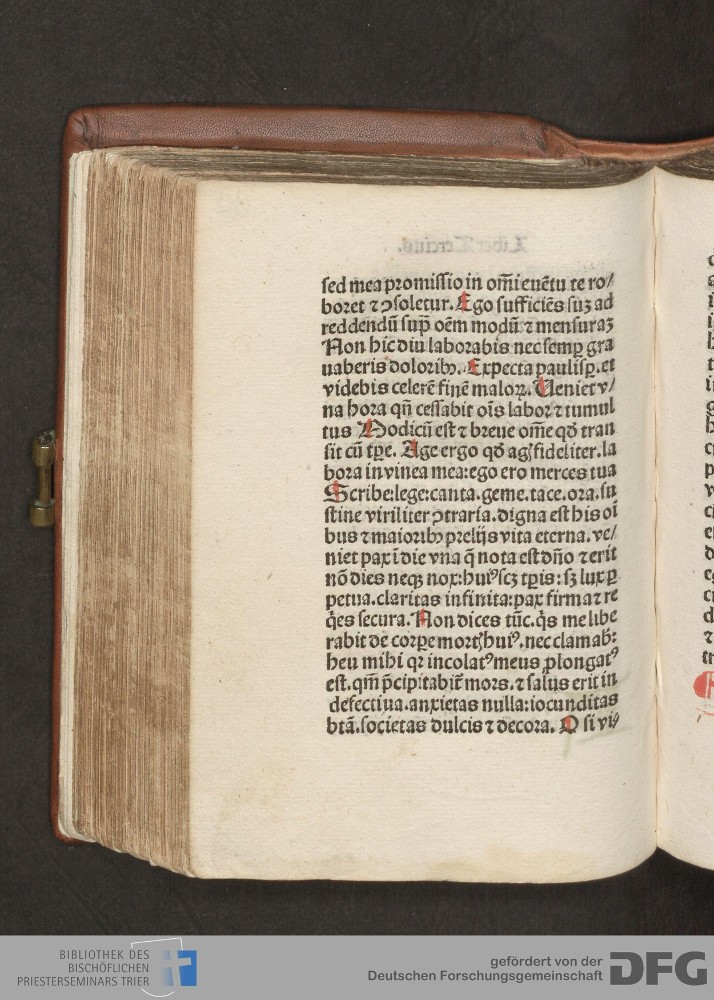 sed mea promissio in om̄i euētu te ro/
boret ⁊ ꝯsoletur. Ego sufficiēs suꝫ ad
reddendū sup̄ oēm modū ⁊ mensuraꝫ
Non hic diu laborabis nec semꝑ gra
uaberis doloribꝰ. Expecta paulisꝑ. et
videbis celerē finē maloꝝ. Ueniet v/
na hora qn̄ cessabit oīs labor ⁊ tumul
tus Modicū est ⁊ breue om̄e qd̄ tran
sit cū tꝑe. Age ergo qd̄ agis fideliter. la
bora in vinea mea: ego ero merces tua
Scribe: lege: canta. geme. tace. ora. su
stine viriliter ꝯtraria. digna est his oī
bus ⁊ maioribꝰ prelijs vita eterna. ve/
niet pax ī die vna q̄ nota est dn̄o ⁊ erit
nō dies neqꝫ nox: huiꝰ scꝫ tꝑis: sꝫ lux ꝑ
petua. claritas infinita: pax firma ⁊ re
q̇es secura. Non dices tūc. q̇s me libe
rabit de corꝑe mortis huiꝰ. nec clamab̄:
heu mihi qꝛ incolatꝰ meus ꝓlongatꝰ
est. qm̄ p̄cipitabit̄ mors. ⁊ salus erit in
defectiua. anxietas nulla: iocunditas
btā. societas dulcis ⁊ decora. O si vi/
BIBLIOTHEK DES
BISCHÖFLICHEN
PRIESTERSEMINARS TRIER
gefördert von der
Deutschen Forschungsgemeinschaft
DFG